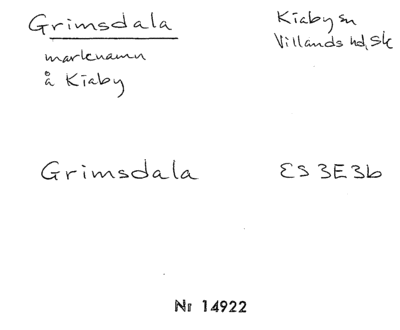 Grimsdala
marknamn
å Kiaby
Kiaby sn
Villands hd, Sk
Grimsdala
ES 3E3b
Nr 14922